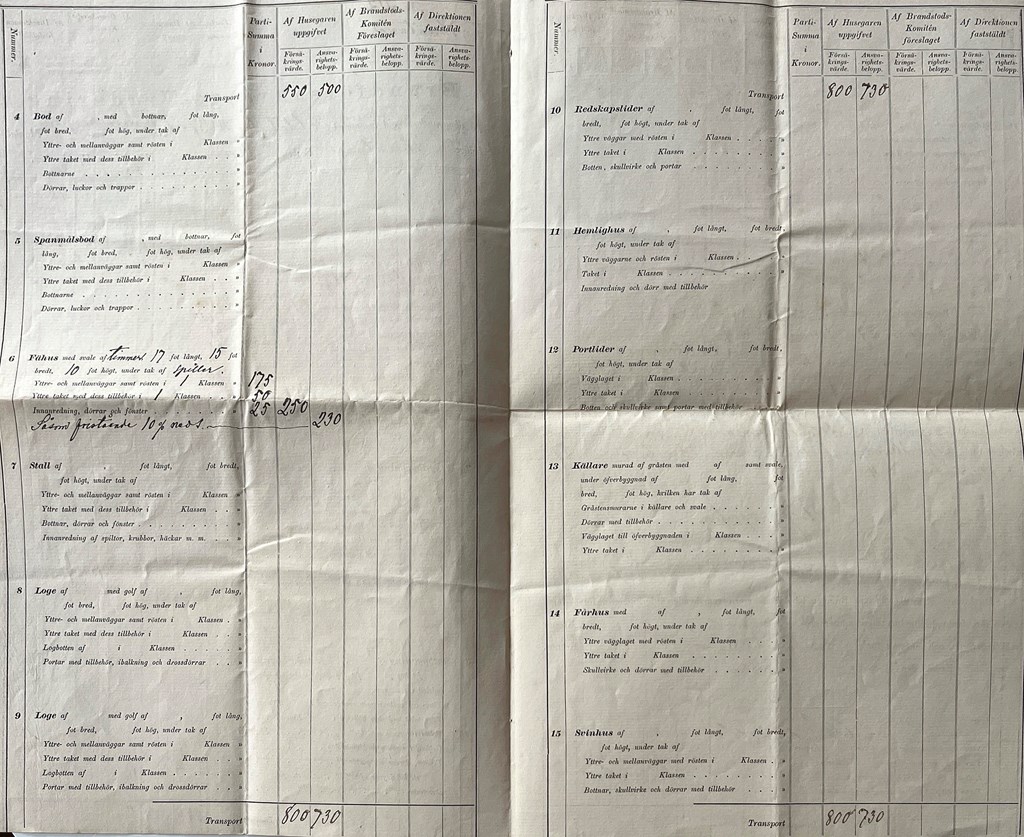 Nummer.
Parti-Summa i Kronor.
Af Husegaren uppgifvet
Af Brandstods-Komitén Föreslaget
Af Direktionen faststäldt
Försäkrings-värde.
Ansvarighets-belopp.
Försäkrings-värde.
Ansvarighets-belopp.
Försäkrings-värde.
Ansvarighets-belopp.
Transport 550 500
4 Bod af , med bottnar, fot lång,
fot bred, fot hög, under tak af
Yttre- och mellanväggar samt rösten i Klassen "
Yttre taket med dess tillbehör i Klassen . . "
Bottnarne . . . . . . . . . . . "
Dörrar, luckor och trappor . . . . . . . "
5 Spanmålsbod af , med bottnar, fot
lång, fot bred, fot hög, under tak af
Yttre- och mellanväggar samt rösten i Klassen "
Yttre taket med dess tillbehör i Klassen . . "
Bottnarne . . . . . . . . . . . "
Dörrar, luckor och trappor . . . . . . . "
6 Fähus med svale af timmer 17 fot långt, 15 fot
bredt, 10 fot högt, under tak af spiller.
Yttre- och mellanväggar samt rösten i 1 Klassen " 175
Yttre taket med dess tillbehör i 1 Klassen . . " 50
Innanredning, dörrar och fönster . . . . . . " 25 250
Såsom fristående 10 % neds. 230
7 Stall af , fot långt, fot bredt,
fot högt, under tak af
Yttre- och mellanväggar samt rösten i Klassen "
Yttre taket med dess tillbehör i Klassen . . "
Bottnar, dörrar och fönster . . . . . . . "
Innanredning af spiltor, krubbor, häckar m. m. . . "
8 Loge af med golf af , fot lång,
fot bred, fot hög, under tak af
Yttre- och mellanväggar samt rösten i Klassen . "
Yttre taket med dess tillbehör i Klassen . . "
Logbotten af i Klassen . . . . . . "
Portar med tillbehör, ibalkning och drossdörrar . . "
9 Loge af med golf af , fot lång,
fot bred, fot hög, under tak af
Yttre- och mellanväggar samt rösten i Klassen "
Yttre taket med dess tillbehör i Klassen . . "
Logbotten af i Klassen . . . . . . "
Portar med tillbehör, ibalkning och drossdörrar . . "
Transport 800 730
Nummer.
Parti-Summa i Kronor.
Af Husegaren uppgifvet
Af Brandstods-Komitén föreslaget
Af Direktionen faststäldt
Försäkrings-värde.
Ansvarighets-belopp.
Försäkrings-värde.
Ansvarighets-belopp.
Försäkrings-värde.
Ansvarighets-belopp.
Transport 800 730
10 Redskapslider af , fot långt, fot
bredt, fot högt, under tak af
Yttre väggar med rösten i Klassen . . . "
Yttre taket i Klassen . . . . . . . "
Botten, skullvirke och portar . . . . . . "
11 Hemlighus af , fot långt, fot bredt,
fot högt, under tak af
Yttre väggarne och rösten i Klassen . . . "
Taket i Klassen . . . . . . . . "
Innanredning och dörr med tillbehör
12 Portlider af , fot långt, fot bredt,
fot högt, under tak af
Vägglaget i Klassen . . . . . . . "
Yttre taket i Klassen . . . . . . . "
Botten och skullvirke samt portar med tillbehör "
13 Källare murad af gråsten med af samt svale,
under öfverbyggnad af fot lång, fot
bred, fot hög, hvilken har tak af
Gråstensmurarne i källare och svale . . . . . "
Dörrar med tillbehör . . . . . . . . "
Vägglaget till öfverbyggnaden i Klassen . . . "
Yttre taket i Klassen . . . . . . . "
14 Fårhus med af , fot långt, fot
bredt, fot högt, under tak af
Yttre vägglaget med rösten i Klassen . . . "
Yttre taket i Klassen . . . . . . . "
Skullvirke och dörrar med tillbehör . . . . . "
15 Svinhus af , fot långt, fot bredt,
fot högt, under tak af
Yttre- och mellanväggar med rösten i Klassen . "
Yttre taket i Klassen . . . . . . . "
Bottnar, skullvirke och dörrar med tillbehör . . . "
Transport 800 730